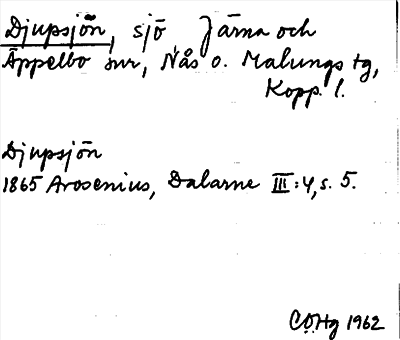 Djupsjön, sjö Järna och
Äppelbo snr, Nås o. Malungs tg,
Kopp. l.
Djupsjön
1865 Arosenius, Dalarne III:4, s. 5.
COHg 1962